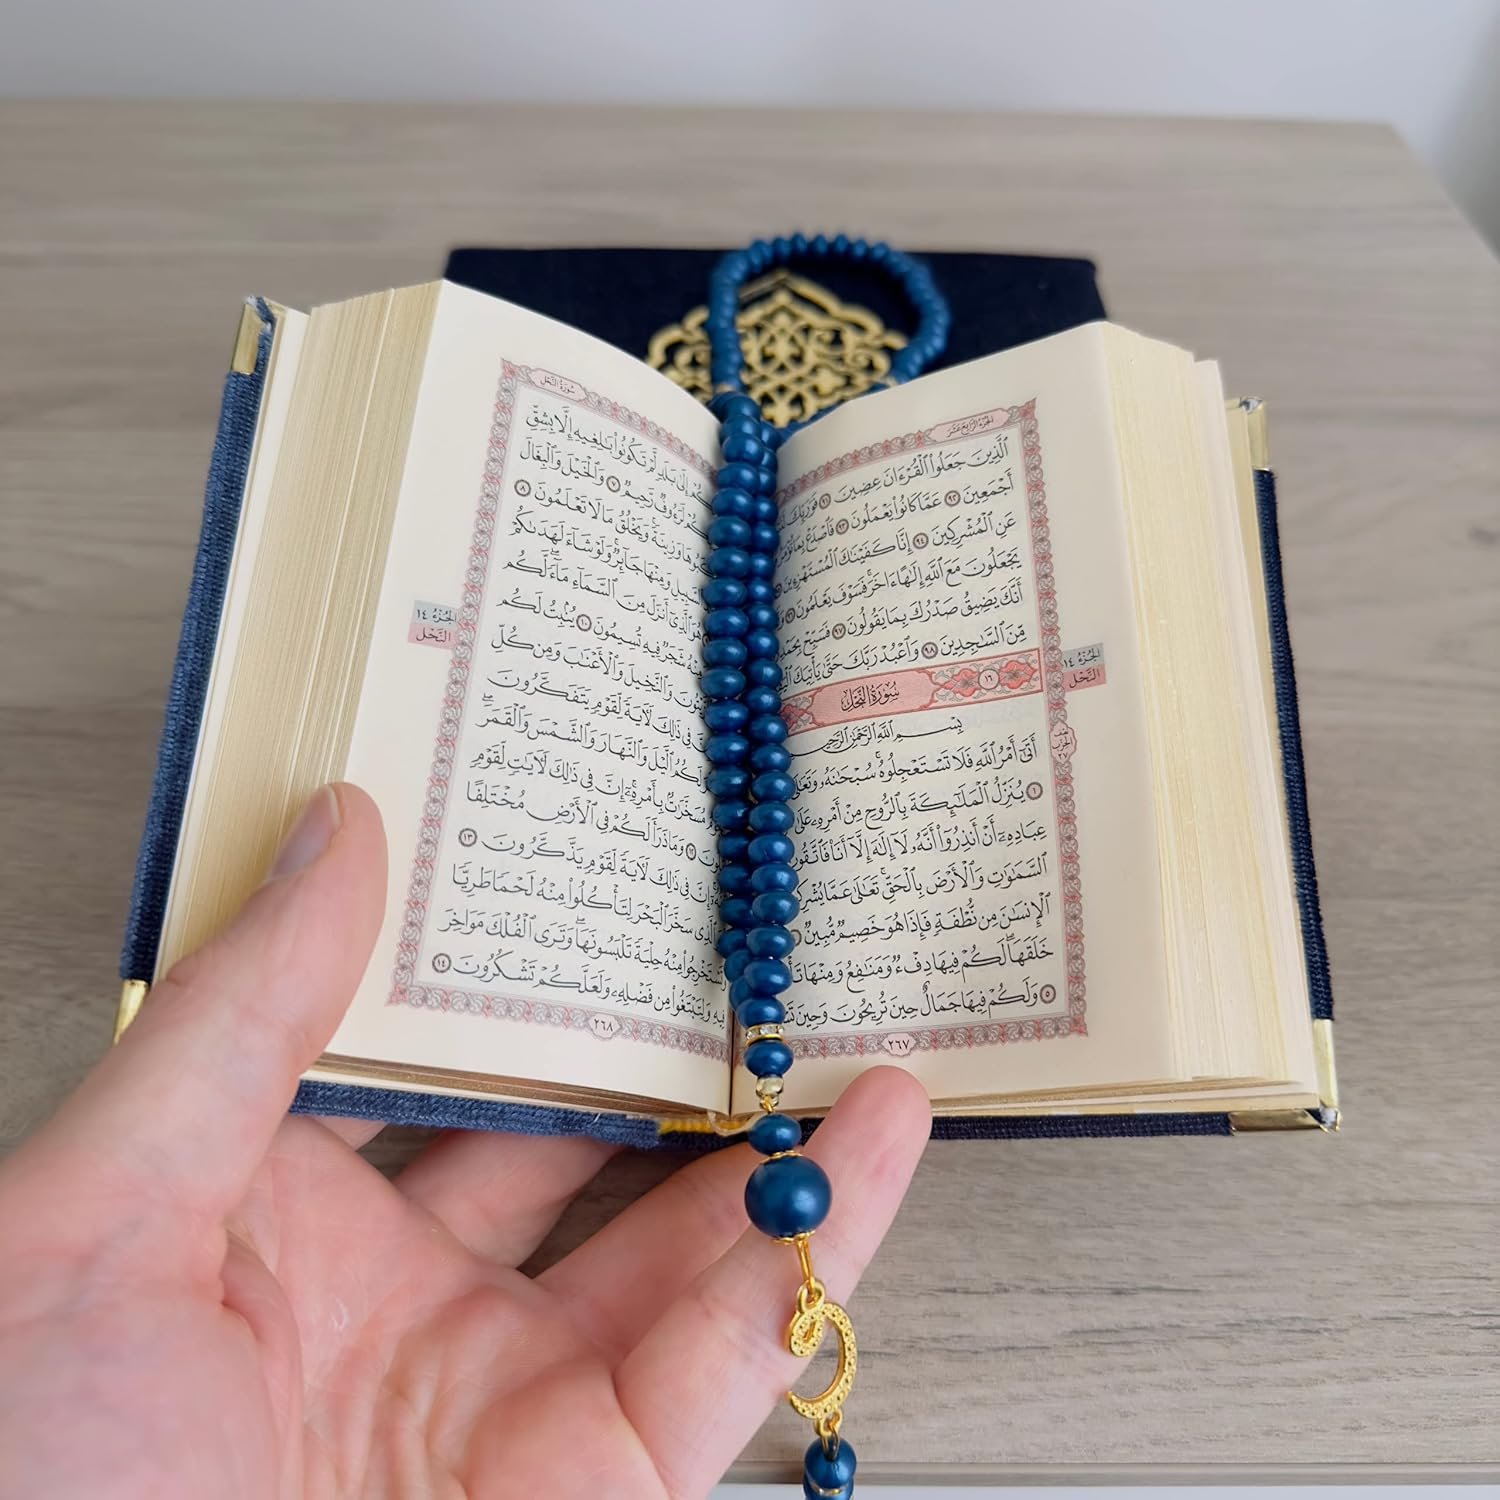 الجزء الرابع عشر
ٱلَّذِينَ جَعَلُوا۟ ٱلْقُرْءَانَ عِضِينَ ٩١ فَوَرَبِّكَ
أَجْمَعِينَ ٩٢ عَمَّا كَانُوا۟ يَعْمَلُونَ ٩٣ فَٱصْدَعْ بِمَا
عَنِ ٱلْمُشْرِكِينَ ٩٤ إِنَّا كَفَيْنَٰكَ ٱلْمُسْتَهْزِءِينَ
يَجْعَلُونَ مَعَ ٱللَّهِ إِلَٰهًا ءَاخَرَ ۚ فَسَوْفَ يَعْلَمُونَ ٩٦
أَنَّكَ يَضِيقُ صَدْرُكَ بِمَا يَقُولُونَ ٩٧ فَسَبِّحْ بِحَمْدِ
مِّنَ ٱلسَّٰجِدِينَ ٩٨ وَٱعْبُدْ رَبَّكَ حَتَّىٰ يَأْتِيَكَ
١٦ سُورَةُ النَّحْلِ
الجزء ١٤
النحل
بِسْمِ ٱللَّهِ ٱلرَّحْمَٰنِ ٱلرَّحِيمِ
نصف الحزب ٢٧
أَتَىٰٓ أَمْرُ ٱللَّهِ فَلَا تَسْتَعْجِلُوهُ ۚ سُبْحَٰنَهُۥ وَتَعَٰلَىٰ
١ يُنَزِّلُ ٱلْمَلَٰٓئِكَةَ بِٱلرُّوحِ مِنْ أَمْرِهِۦ عَلَىٰ
عِبَادِهِۦٓ أَنْ أَنذِرُوٓا۟ أَنَّهُۥ لَآ إِلَٰهَ إِلَّآ أَنَا۠ فَٱتَّقُونِ
ٱلسَّمَٰوَٰتِ وَٱلْأَرْضَ بِٱلْحَقِّ ۚ تَعَٰلَىٰ عَمَّا يُشْرِكُونَ
ٱلْإِنسَٰنَ مِن نُّطْفَةٍ فَإِذَا هُوَ خَصِيمٌ مُّبِينٌ
خَلَقَهَا ۗ لَكُمْ فِيهَا دِفْءٌ وَمَنَٰفِعُ وَمِنْهَا
٥ وَلَكُمْ فِيهَا جَمَالٌ حِينَ تُرِيحُونَ وَحِينَ
٢٦٧
سورة النحل
إِلَىٰ بَلَدٍ لَّمْ تَكُونُوا۟ بَٰلِغِيهِ إِلَّا بِشِقِّ
لَرَءُوفٌ رَّحِيمٌ ٧ وَٱلْخَيْلَ وَٱلْبِغَالَ
وَزِينَةً ۚ وَيَخْلُقُ مَا لَا تَعْلَمُونَ ٨
ٱلسَّبِيلِ وَمِنْهَا جَآئِرٌ ۚ وَلَوْ شَآءَ لَهَدَىٰكُمْ
هُوَ ٱلَّذِىٓ أَنزَلَ مِنَ ٱلسَّمَآءِ مَآءً ۖ لَّكُم
مِنْهُ شَجَرٌ فِيهِ تُسِيمُونَ ١٠ يُنۢبِتُ لَكُم
وَٱلنَّخِيلَ وَٱلْأَعْنَٰبَ وَمِن كُلِّ
فِى ذَٰلِكَ لَءَايَةً لِّقَوْمٍ يَتَفَكَّرُونَ
لَكُمُ ٱلَّيْلَ وَٱلنَّهَارَ وَٱلشَّمْسَ وَٱلْقَمَرَ ۖ
مُسَخَّرَٰتٌۢ بِأَمْرِهِۦٓ ۗ إِنَّ فِى ذَٰلِكَ لَءَايَٰتٍ لِّقَوْمٍ
١٢ وَمَا ذَرَأَ لَكُمْ فِى ٱلْأَرْضِ مُخْتَلِفًا
إِنَّ فِى ذَٰلِكَ لَءَايَةً لِّقَوْمٍ يَذَّكَّرُونَ ١٣
ٱلَّذِى سَخَّرَ ٱلْبَحْرَ لِتَأْكُلُوا۟ مِنْهُ لَحْمًا طَرِيًّا
وَتَسْتَخْرِجُوا۟ مِنْهُ حِلْيَةً تَلْبَسُونَهَا ۖ وَتَرَى ٱلْفُلْكَ مَوَاخِرَ
فِيهِ وَلِتَبْتَغُوا۟ مِن فَضْلِهِۦ وَلَعَلَّكُمْ تَشْكُرُونَ ١٤
الجزء ١٤
النحل
٢٦٨